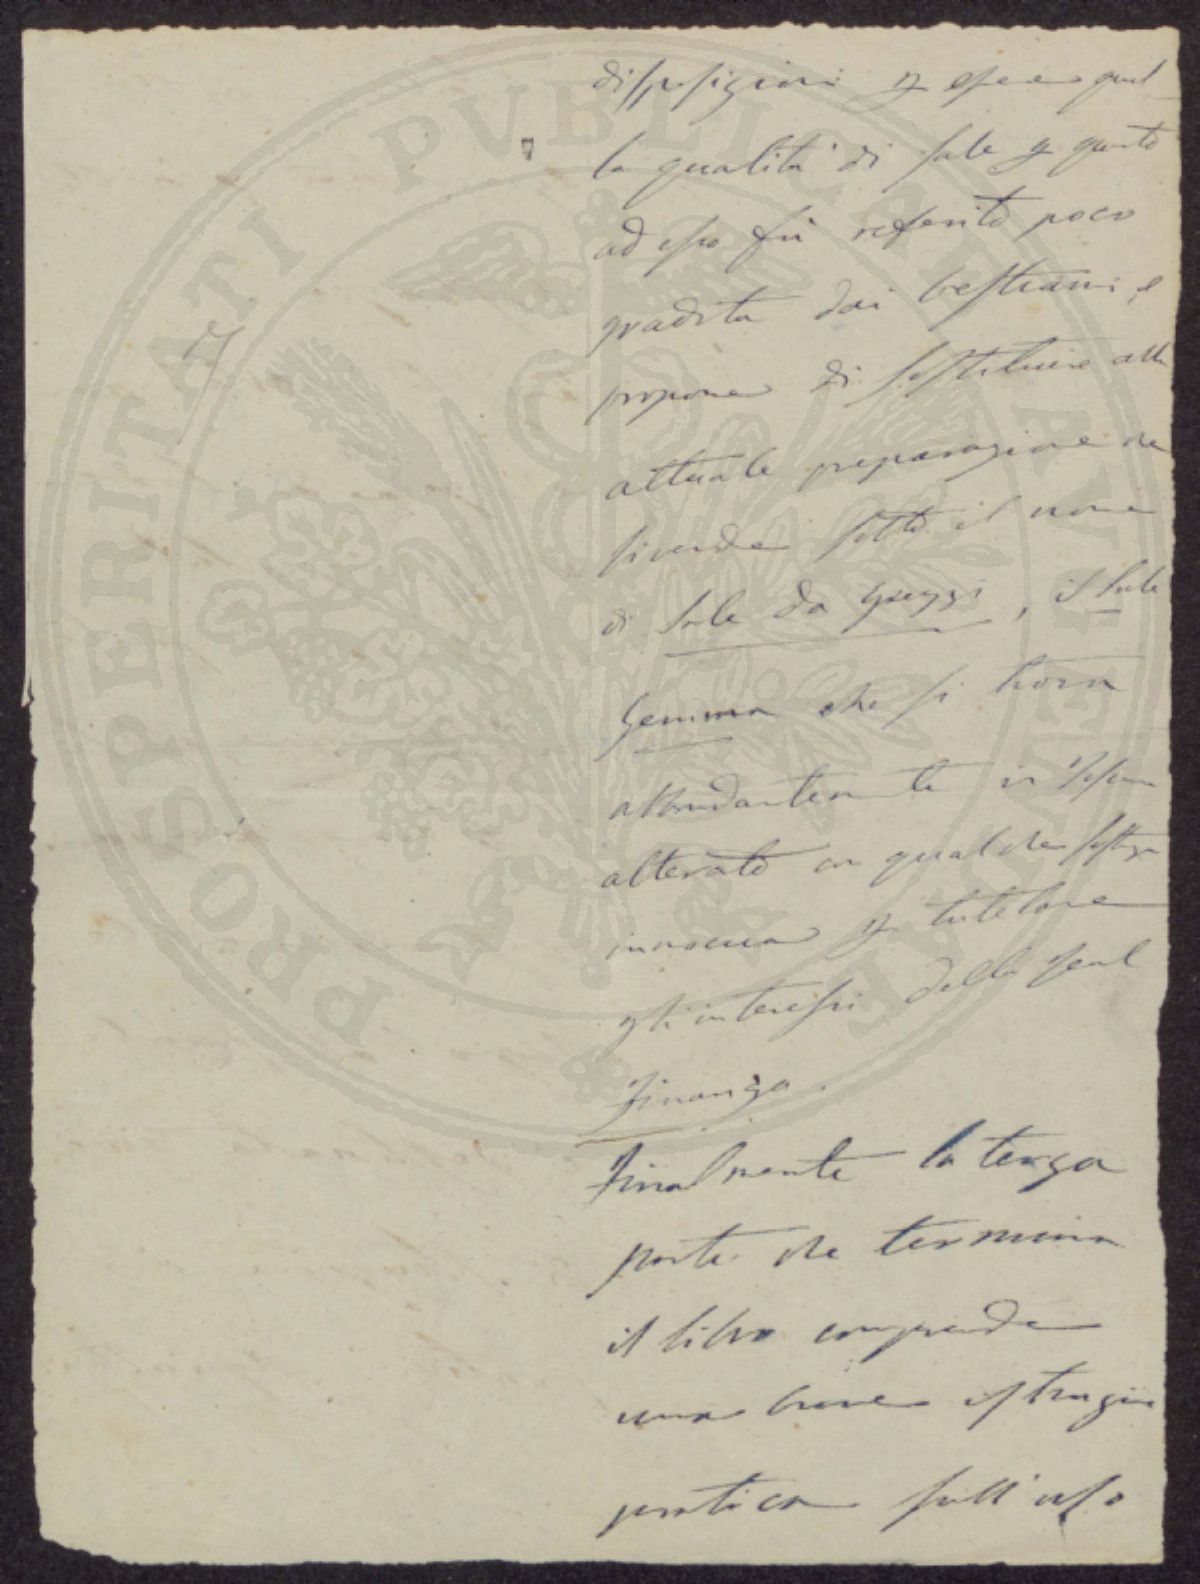 PROSPERITATI PVBLICAE AVGENDAE
disposizioni
la qualità di sale
ad esso fu referito poco
gradita dai bestiami, e
propone di sostituire alla
attuale preparazione che
si vende sotto il nome
di Sale da Greggi, il Sale
Gemma che si trova
abbondantemente in
alterato con qualche
innocua tutelare
gli interessi della Real
Finanza.
Finalmente la terza
parte che termina
il libro comprende
una breve istruzione
pratica sull'uso